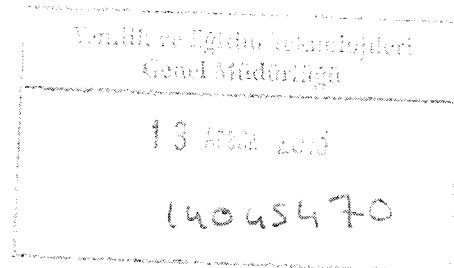 Yenilik ve Eğitim Teknolojileri
Genel Müdürlüğü
13
14045470